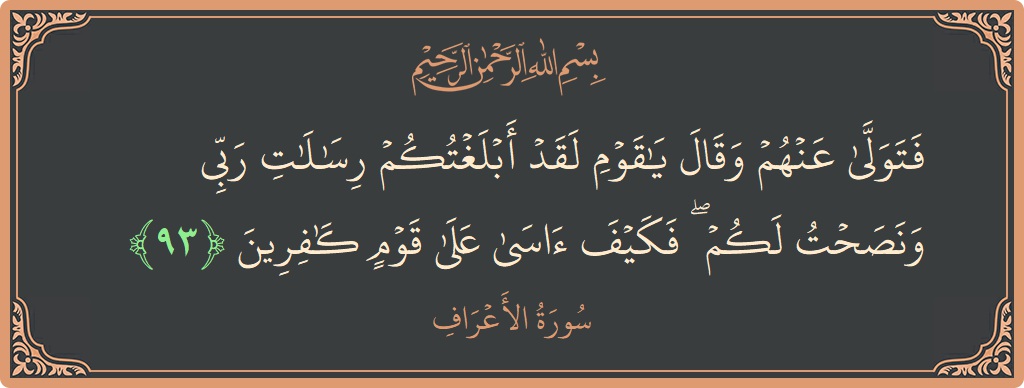 بِسْمِ اللَّهِ الرَّحْمَٰنِ الرَّحِيمِ
فَتَوَلَّىٰ عَنْهُمْ وَقَالَ يَٰقَوْمِ لَقَدْ أَبْلَغْتُكُمْ رِسَٰلَٰتِ رَبِّى
وَنَصَحْتُ لَكُمْ ۖ فَكَيْفَ ءَاسَىٰ عَلَىٰ قَوْمٍ كَٰفِرِينَ ﴿٩٣﴾
سُورَةُ الأَعْرَافِ